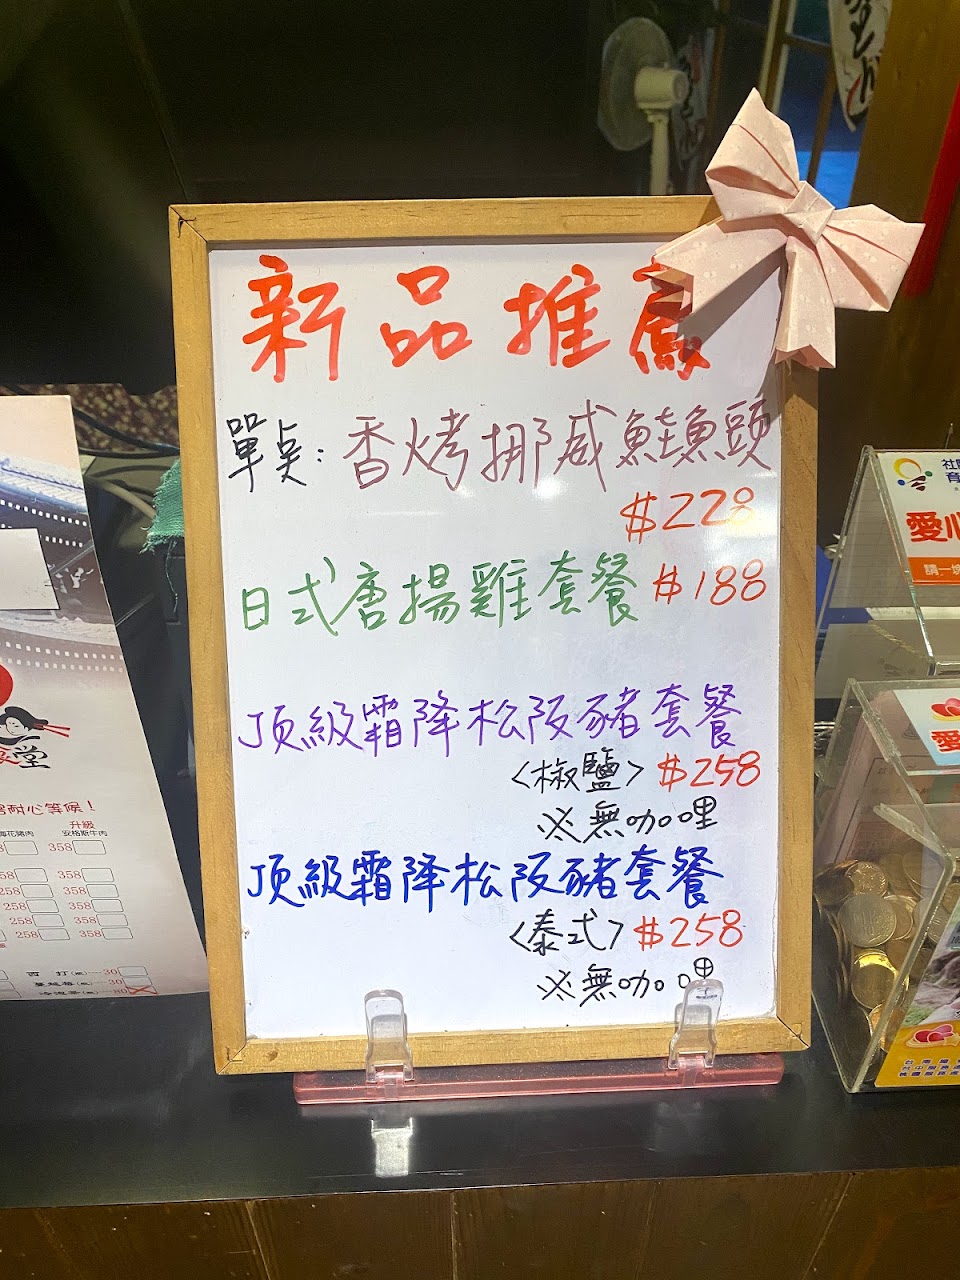 新品推薦
單点:香烤挪威鮭魚頭
$228
日式唐揚雞套餐 $188
頂級霜降松阪豬套餐
<椒鹽> $258
※無咖哩
頂級霜降松阪豬套餐
<泰式> $258
※無咖哩
堂
耐心等候！
升級
安格斯牛肉
358
358
258 358
258 358
258 358
西 打(瓶)—30
30
愛心
請一
愛